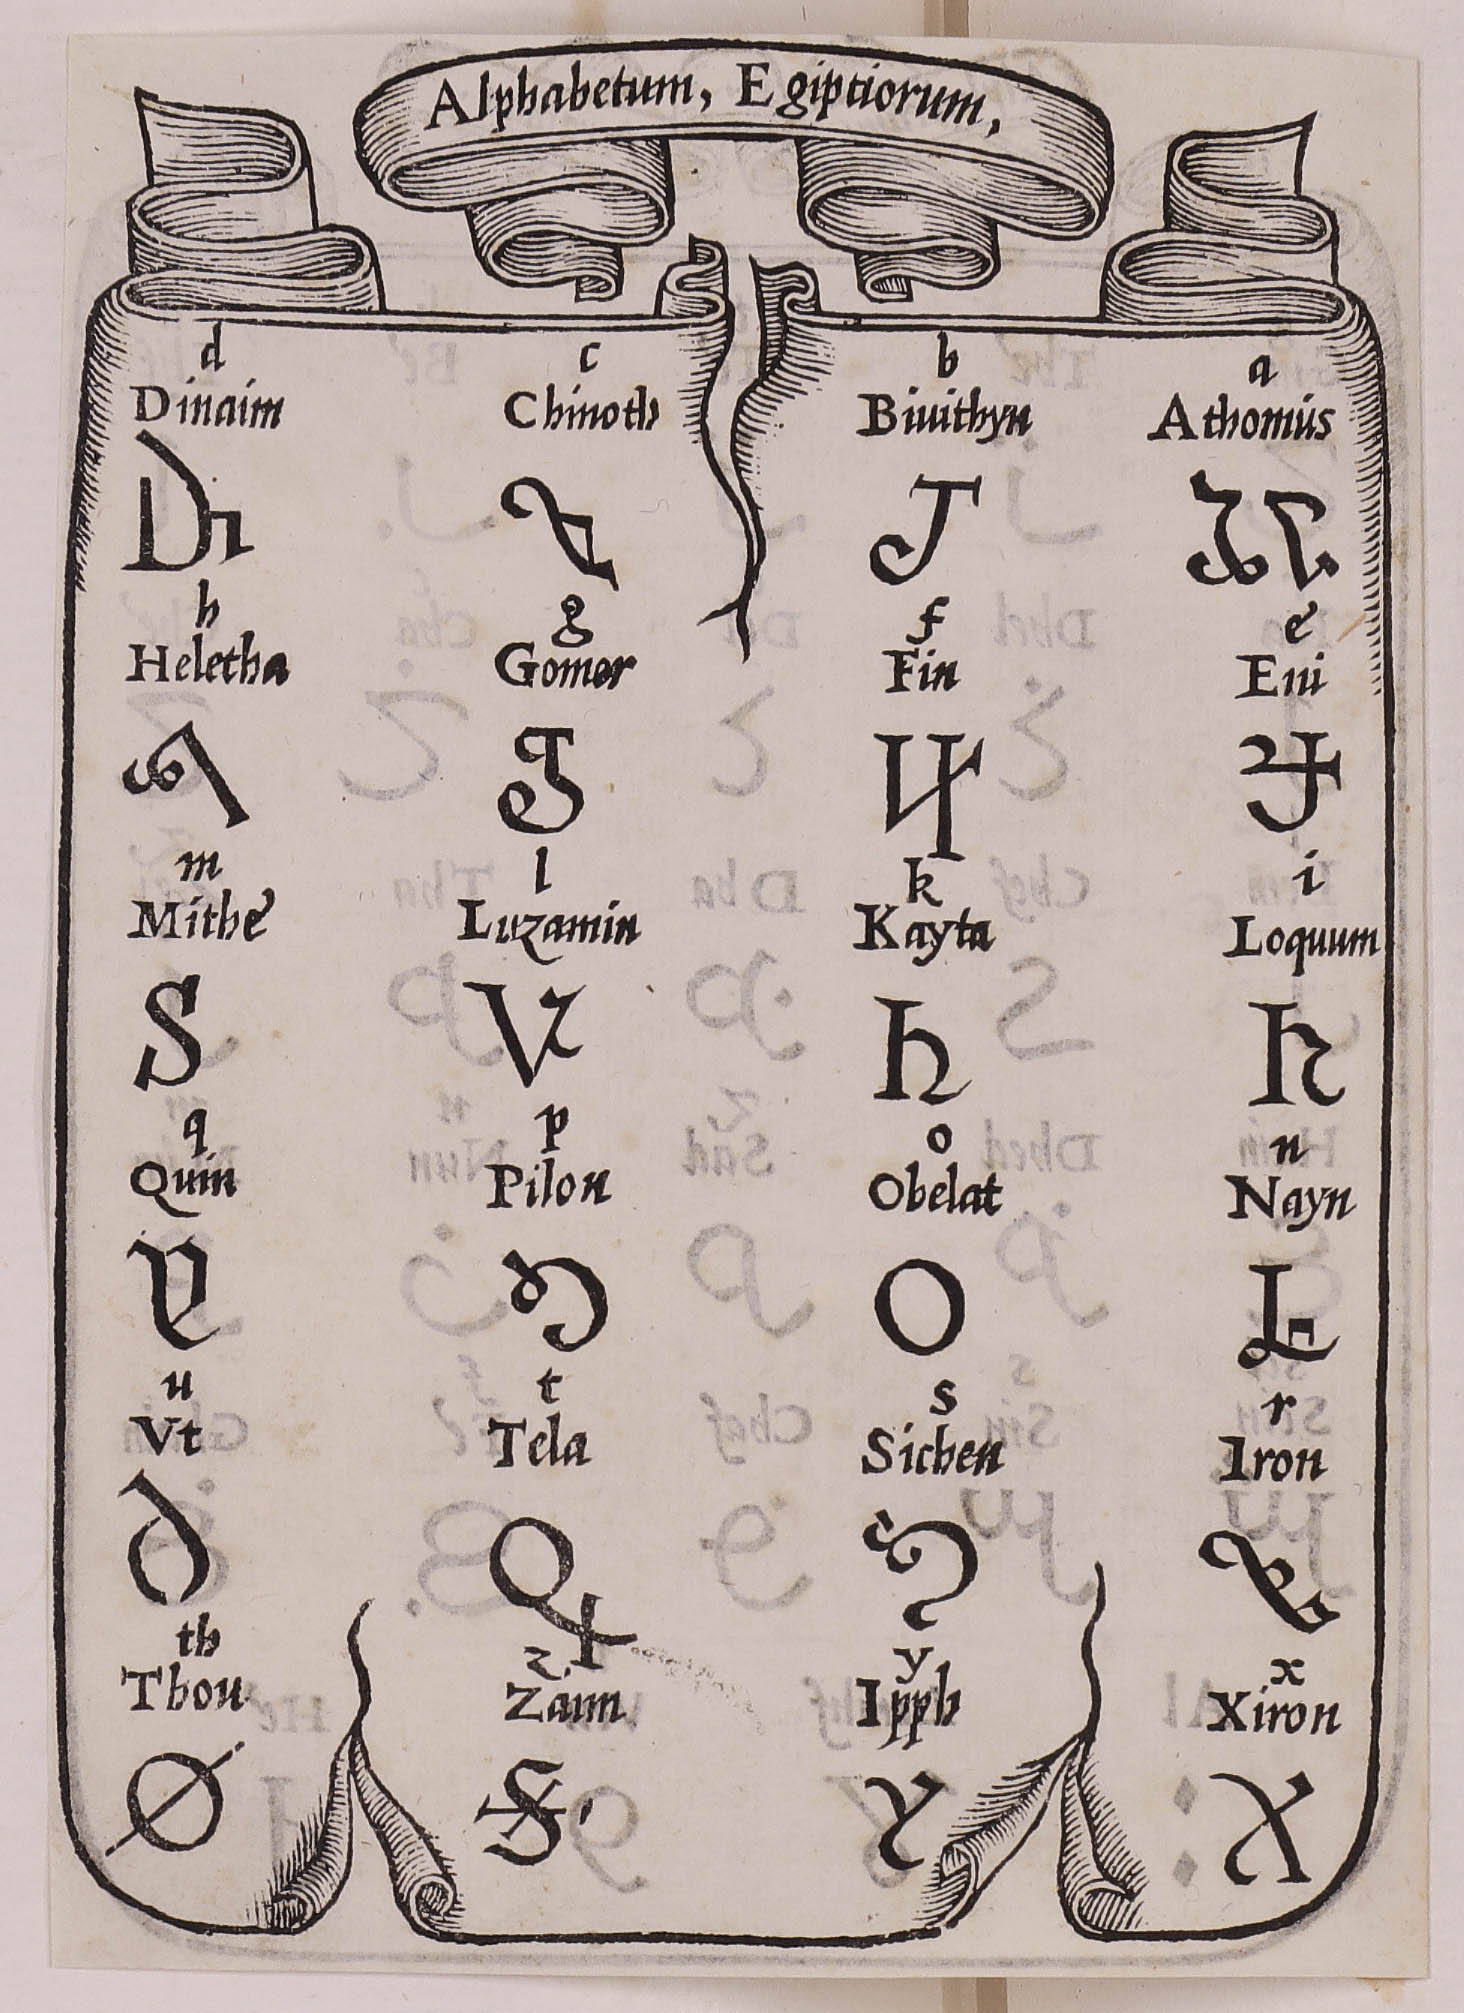 Alphabetum, Egiptiorum,
d c b a
Dinaim Chinoth Biuithyn Athomus
h g f e
Heletha Gomor Fin Eni
m l k i
Mithe Luzamin Kayta Loquum
q p o n
Quin Pilon Obelat Nayn
u t s r
Vt Tela Sichen Iron
th z y x
Thou Zaim Ipph Xiron